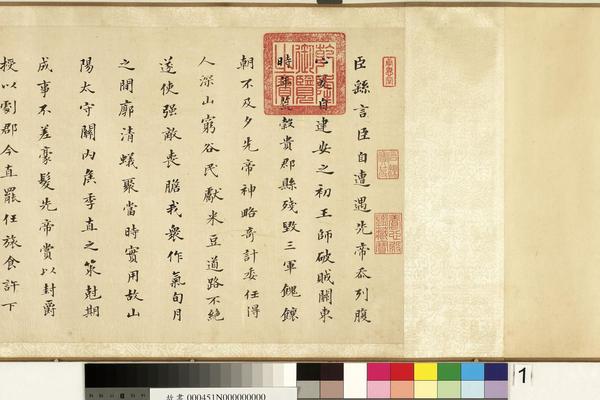 臣繇言臣自遭遇先帝忝列腹
心爰自建安之初王師破賊關東
時年荒穀貴郡縣殘毀三軍餽饟
朝不及夕先帝神略奇計委任得
人深山窮谷民獻米豆道路不絕
遂使强敵喪膽我衆作氣旬月
之間廓清蟻聚當時實用故山
陽太守關內侯季直之策尅期
成事不差豪髮先帝賞以封爵
授以劇郡今直罷任旅食許下
乾隆御覽之寶
1
故書 000451N000000000